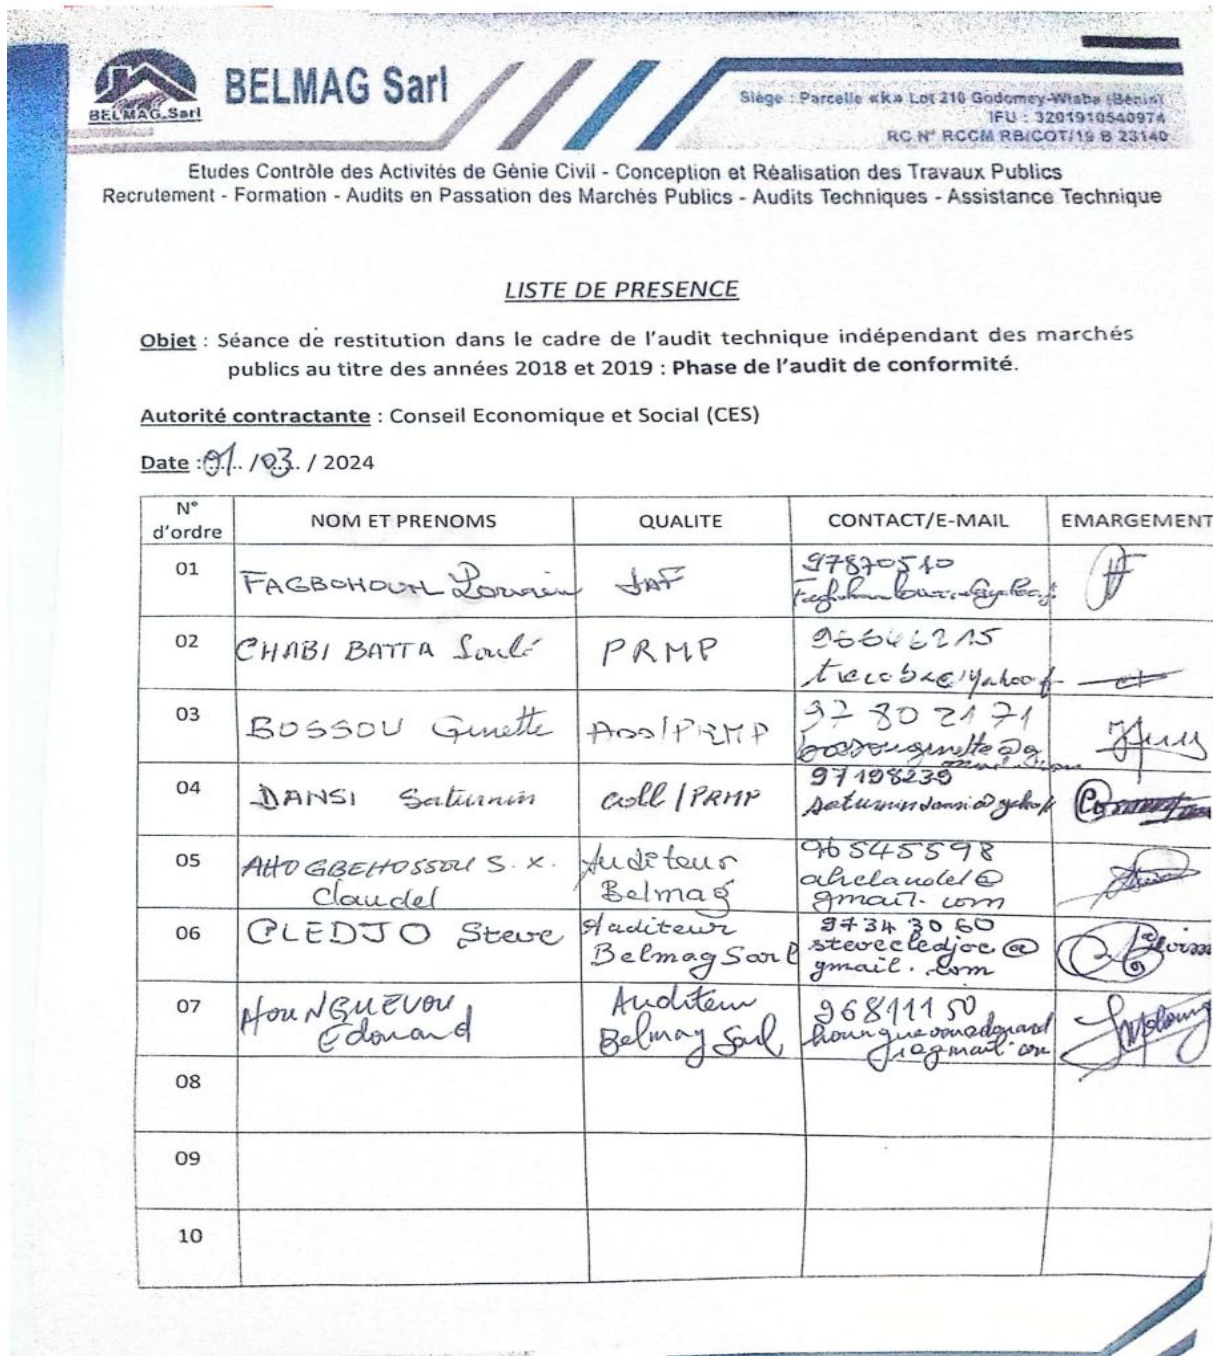 BELMAG Sarl
BELMAG.Sarl
Siège : Parcelle «k» Lot 210 Godomey-Wlaba (Bénin)
IFU : 3201910540974
RC N° RCCM RB/COT/19 B 23140
Etudes Contrôle des Activités de Génie Civil - Conception et Réalisation des Travaux Publics
Recrutement - Formation - Audits en Passation des Marchés Publics - Audits Techniques - Assistance Technique
LISTE DE PRESENCE
Objet : Séance de restitution dans le cadre de l'audit technique indépendant des marchés
publics au titre des années 2018 et 2019 : Phase de l'audit de conformité.
Autorité contractante : Conseil Economique et Social (CES)
Date : 01 / 03 / 2024
N° d'ordre NOM ET PRENOMS QUALITE CONTACT/E-MAIL EMARGEMENT
01 FAGBOHOUN 97870510
02 CHABI BATTA Soulé PRMP 96646215
03 BOSSOU Ginette Ass/PRMP 97 80 21 71
bossouginette@g
04 DANSI Saturnin coll/PRMP 97198239
05 AHOGBEHOSSOU S. X. Auditeur 96545598
Claudel Belmag ahclaudel@
gmail.com
06 CLEDJO Steve Auditeur 9734 30 60
Belmag Sarl stevecledjoc@
gmail.com
07 HOUNGUEVOU Auditeur 96811150
Edouard Belmag Sarl
08
09
10